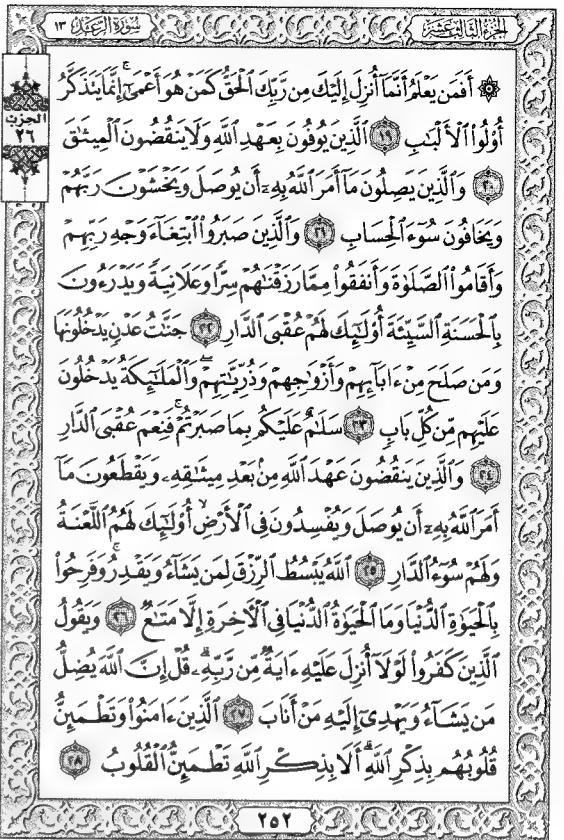 سُورَةُ الرَّعْدِ ١٣
الجُزْءُ الثَّالِثَ عَشَرَ
الحِزْبُ
٢٦
۞ أَفَمَن يَعْلَمُ أَنَّمَآ أُنزِلَ إِلَيْكَ مِن رَّبِّكَ ٱلْحَقُّ كَمَنْ هُوَ أَعْمَىٰٓ ۚ إِنَّمَا يَتَذَكَّرُ
أُو۟لُوا۟ ٱلْأَلْبَٰبِ ١٩ ٱلَّذِينَ يُوفُونَ بِعَهْدِ ٱللَّهِ وَلَا يَنقُضُونَ ٱلْمِيثَٰقَ
٢٠ وَٱلَّذِينَ يَصِلُونَ مَآ أَمَرَ ٱللَّهُ بِهِۦٓ أَن يُوصَلَ وَيَخْشَوْنَ رَبَّهُمْ
وَيَخَافُونَ سُوٓءَ ٱلْحِسَابِ ٢١ وَٱلَّذِينَ صَبَرُوا۟ ٱبْتِغَآءَ وَجْهِ رَبِّهِمْ
وَأَقَامُوا۟ ٱلصَّلَوٰةَ وَأَنفَقُوا۟ مِمَّا رَزَقْنَٰهُمْ سِرًّا وَعَلَانِيَةً وَيَدْرَءُونَ
بِٱلْحَسَنَةِ ٱلسَّيِّئَةَ أُو۟لَٰٓئِكَ لَهُمْ عُقْبَى ٱلدَّارِ ٢٢ جَنَّٰتُ عَدْنٍ يَدْخُلُونَهَا
وَمَن صَلَحَ مِنْ ءَابَآئِهِمْ وَأَزْوَٰجِهِمْ وَذُرِّيَّٰتِهِمْ ۖ وَٱلْمَلَٰٓئِكَةُ يَدْخُلُونَ
عَلَيْهِم مِّن كُلِّ بَابٍ ٢٣ سَلَٰمٌ عَلَيْكُم بِمَا صَبَرْتُمْ ۚ فَنِعْمَ عُقْبَى ٱلدَّارِ
٢٤ وَٱلَّذِينَ يَنقُضُونَ عَهْدَ ٱللَّهِ مِنۢ بَعْدِ مِيثَٰقِهِۦ وَيَقْطَعُونَ مَآ
أَمَرَ ٱللَّهُ بِهِۦٓ أَن يُوصَلَ وَيُفْسِدُونَ فِى ٱلْأَرْضِ ۙ أُو۟لَٰٓئِكَ لَهُمُ ٱللَّعْنَةُ
وَلَهُمْ سُوٓءُ ٱلدَّارِ ٢٥ ٱللَّهُ يَبْسُطُ ٱلرِّزْقَ لِمَن يَشَآءُ وَيَقْدِرُ ۚ وَفَرِحُوا۟
بِٱلْحَيَوٰةِ ٱلدُّنْيَا وَمَا ٱلْحَيَوٰةُ ٱلدُّنْيَا فِى ٱلْءَاخِرَةِ إِلَّا مَتَٰعٌ ٢٦ وَيَقُولُ
ٱلَّذِينَ كَفَرُوا۟ لَوْلَآ أُنزِلَ عَلَيْهِ ءَايَةٌ مِّن رَّبِّهِۦ ۗ قُلْ إِنَّ ٱللَّهَ يُضِلُّ
مَن يَشَآءُ وَيَهْدِىٓ إِلَيْهِ مَنْ أَنَابَ ٢٧ ٱلَّذِينَ ءَامَنُوا۟ وَتَطْمَئِنُّ
قُلُوبُهُم بِذِكْرِ ٱللَّهِ ۗ أَلَا بِذِكْرِ ٱللَّهِ تَطْمَئِنُّ ٱلْقُلُوبُ ٢٨
٢٥٢